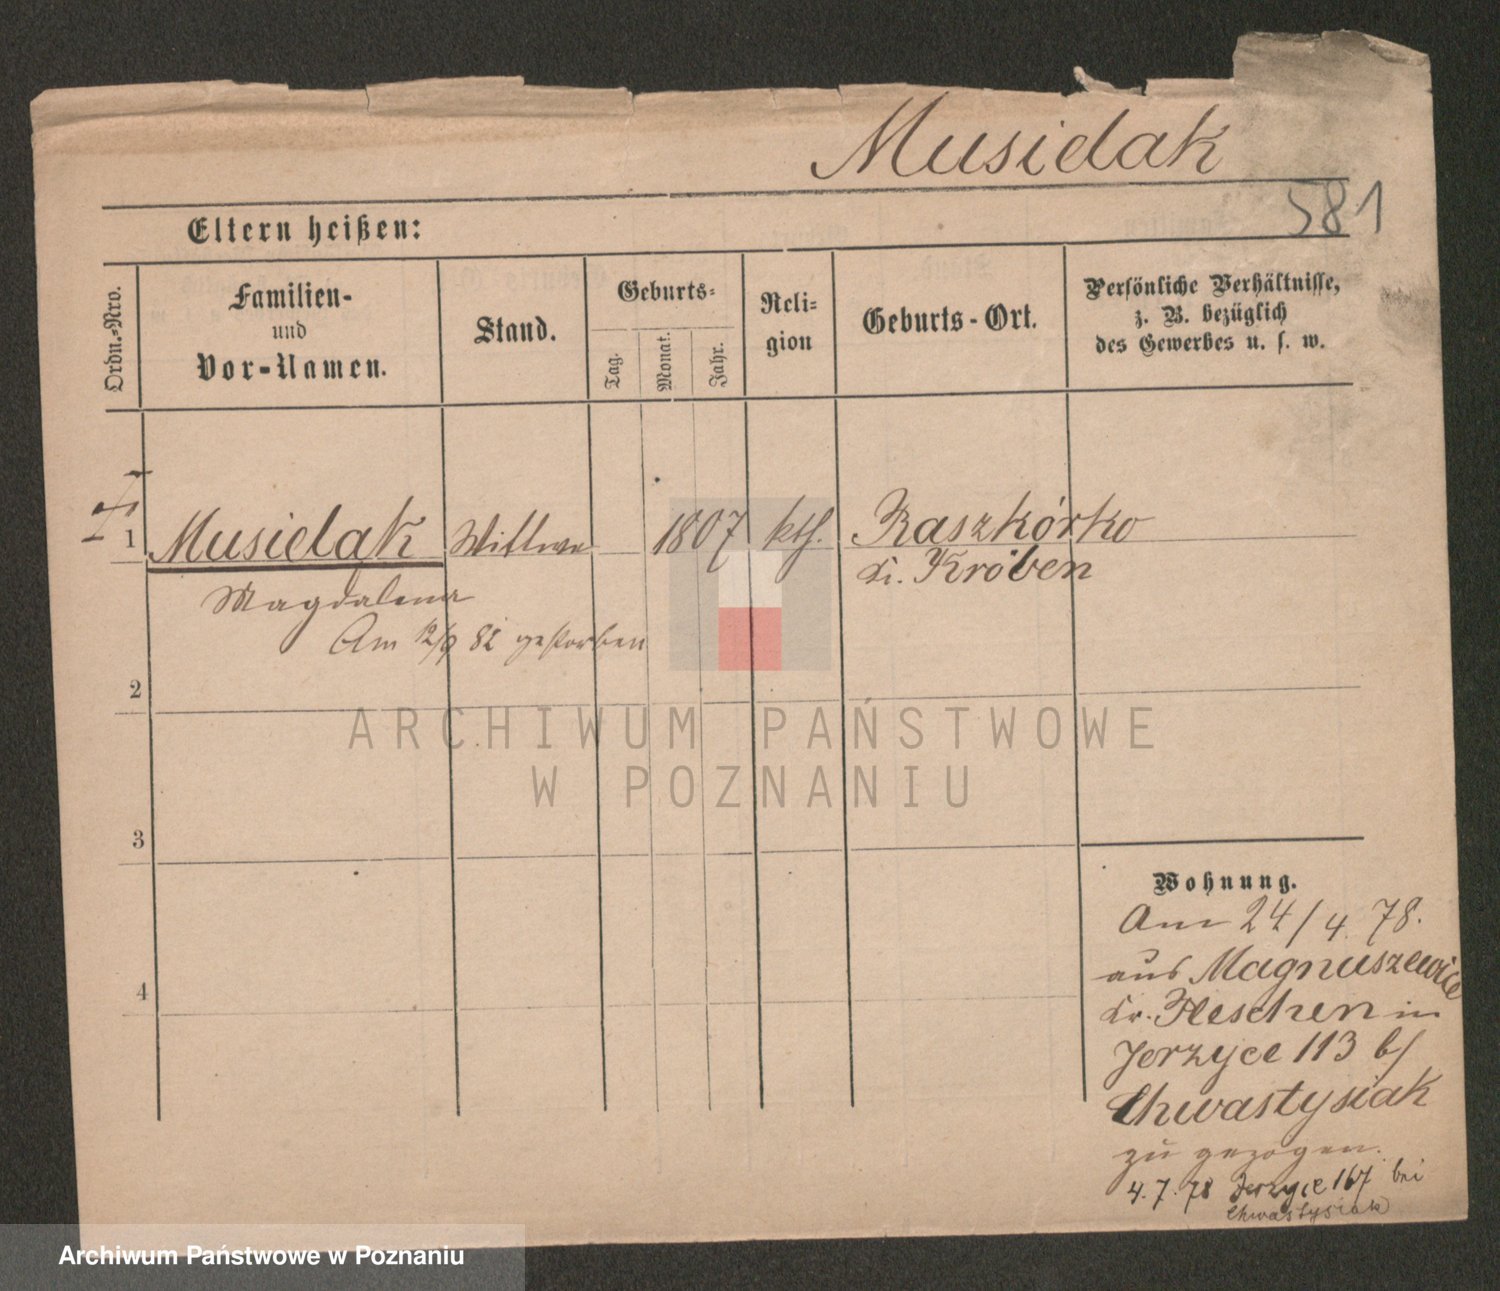 Musielak
581
Eltern heißen:
Ordn.-Nro.
Familien-
und
Vor-Namen.
Stand.
Geburts-
Tag.
Monat.
Jahr.
Reli-
gion
Geburts-Ort.
Persönliche Verhältnisse,
z. B. bezüglich
des Gewerbes u. s. w.
1 Musielak Wittwe 1807 kth. Raszkórko
Magdalena
Kr. Kröben
Am 12/9 82 gestorben
2
3
4
Wohnung.
Am 24/4. 78.
aus Magnuszewice
Kr. Pleschen in
Jerzyce 113 b/
Chwastysiak
zu gezogen.
4. 7. 78 Jerzyce 167 bei
Chwastysiak
ARCHIWUM PAŃSTWOWE
W POZNANIU
Archiwum Państwowe w Poznaniu